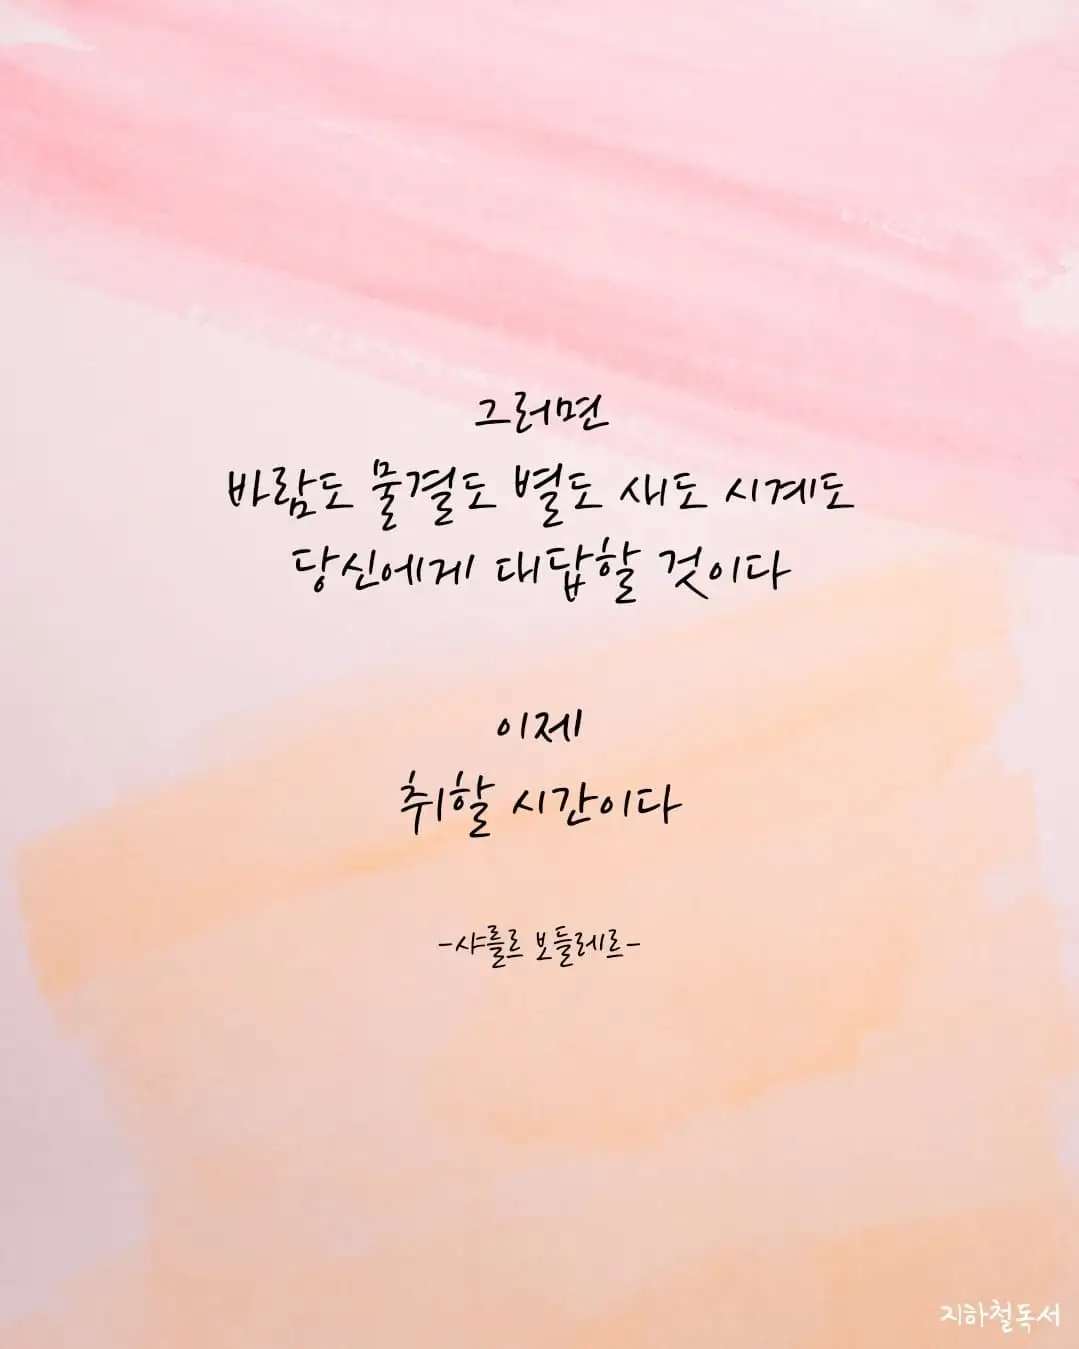 그러면
바람도 물결도 별도 새도 시계도
당신에게 대답할 것이다
이제
취할 시간이다
-샤를르 보들레르-
지하철독서